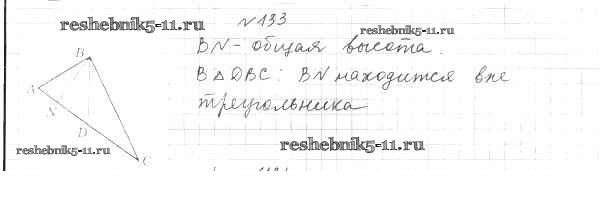 reshebnik5-11.ru
№133
reshebnik5-11.ru
BN - общая высота.
В △DBC: BN находится вне
треугольника
B
A
N
D
C
reshebnik5-11.ru
reshebnik5-11.ru